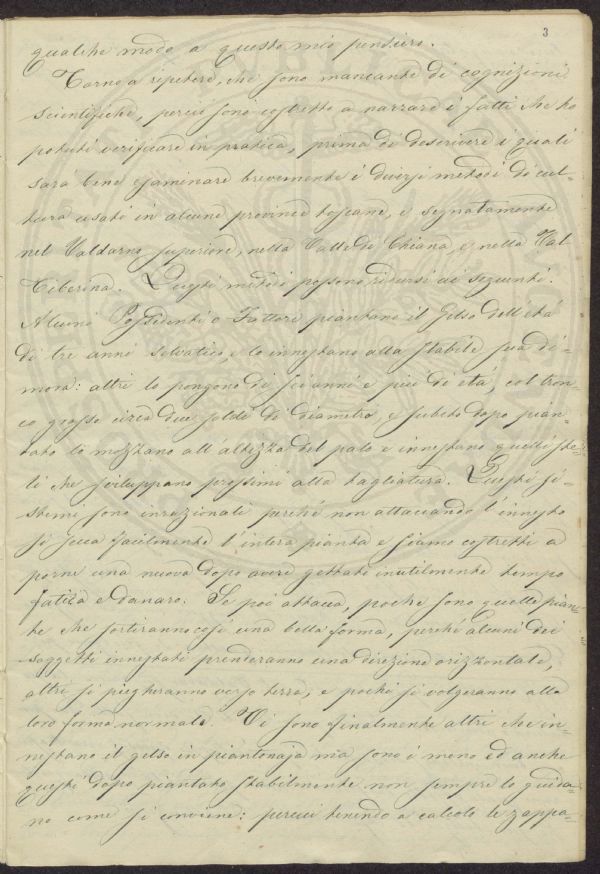 3
qualche modo a questo mio pensiero.
Torno a ripetere, che sono mancante di cognizioni
scientifiche, perciò sono costretto a narrare i fatti che ho
potuti verificare in pratica, prima di descrivere i quali
sarà bene esaminare brevemente i diversi metodi di cul-
tura usati in alcune provincie toscane, e segnatamente
nel Valdarno superiore, nella Valle di Chiana, e nella Val
Tiberina. Questi metodi possono ridursi ai seguenti.
Alcuni Possidenti o Fattori piantano il Gelso dell'età
di tre anni selvatico, e lo innestano alla stabile sua di-
mora: altri lo pongono di sei anni e più di età, col tron-
co grosso circa due soldi di diametro, e subito dopo pian-
tato lo mozzano all'altezza del palo e innestano quelli ste-
li che sviluppano prossimi alla tagliatura. Questi si-
stemi sono irrazionali perchè non attaccando l'innesto
si secca facilmente l'intera pianta e siamo costretti a
porne una nuova dopo avere gettato inutilmente tempo
fatica e danaro. Se poi attacca, poche sono quelle pian-
te che sortiranno così una bella forma, perchè alcuni dei
soggetti innestati prenderanno una direzione orizzontale,
altri si piegheranno verso terra, e pochi si volgeranno alla
loro forma normale. Vi sono finalmente altri che in-
nestano il gelso in piantonaja ma sono i meno ed anche
questi dopo piantato stabilmente non sempre lo guida-
no come si conviene: perciò tenendo a calcolo le zappa-